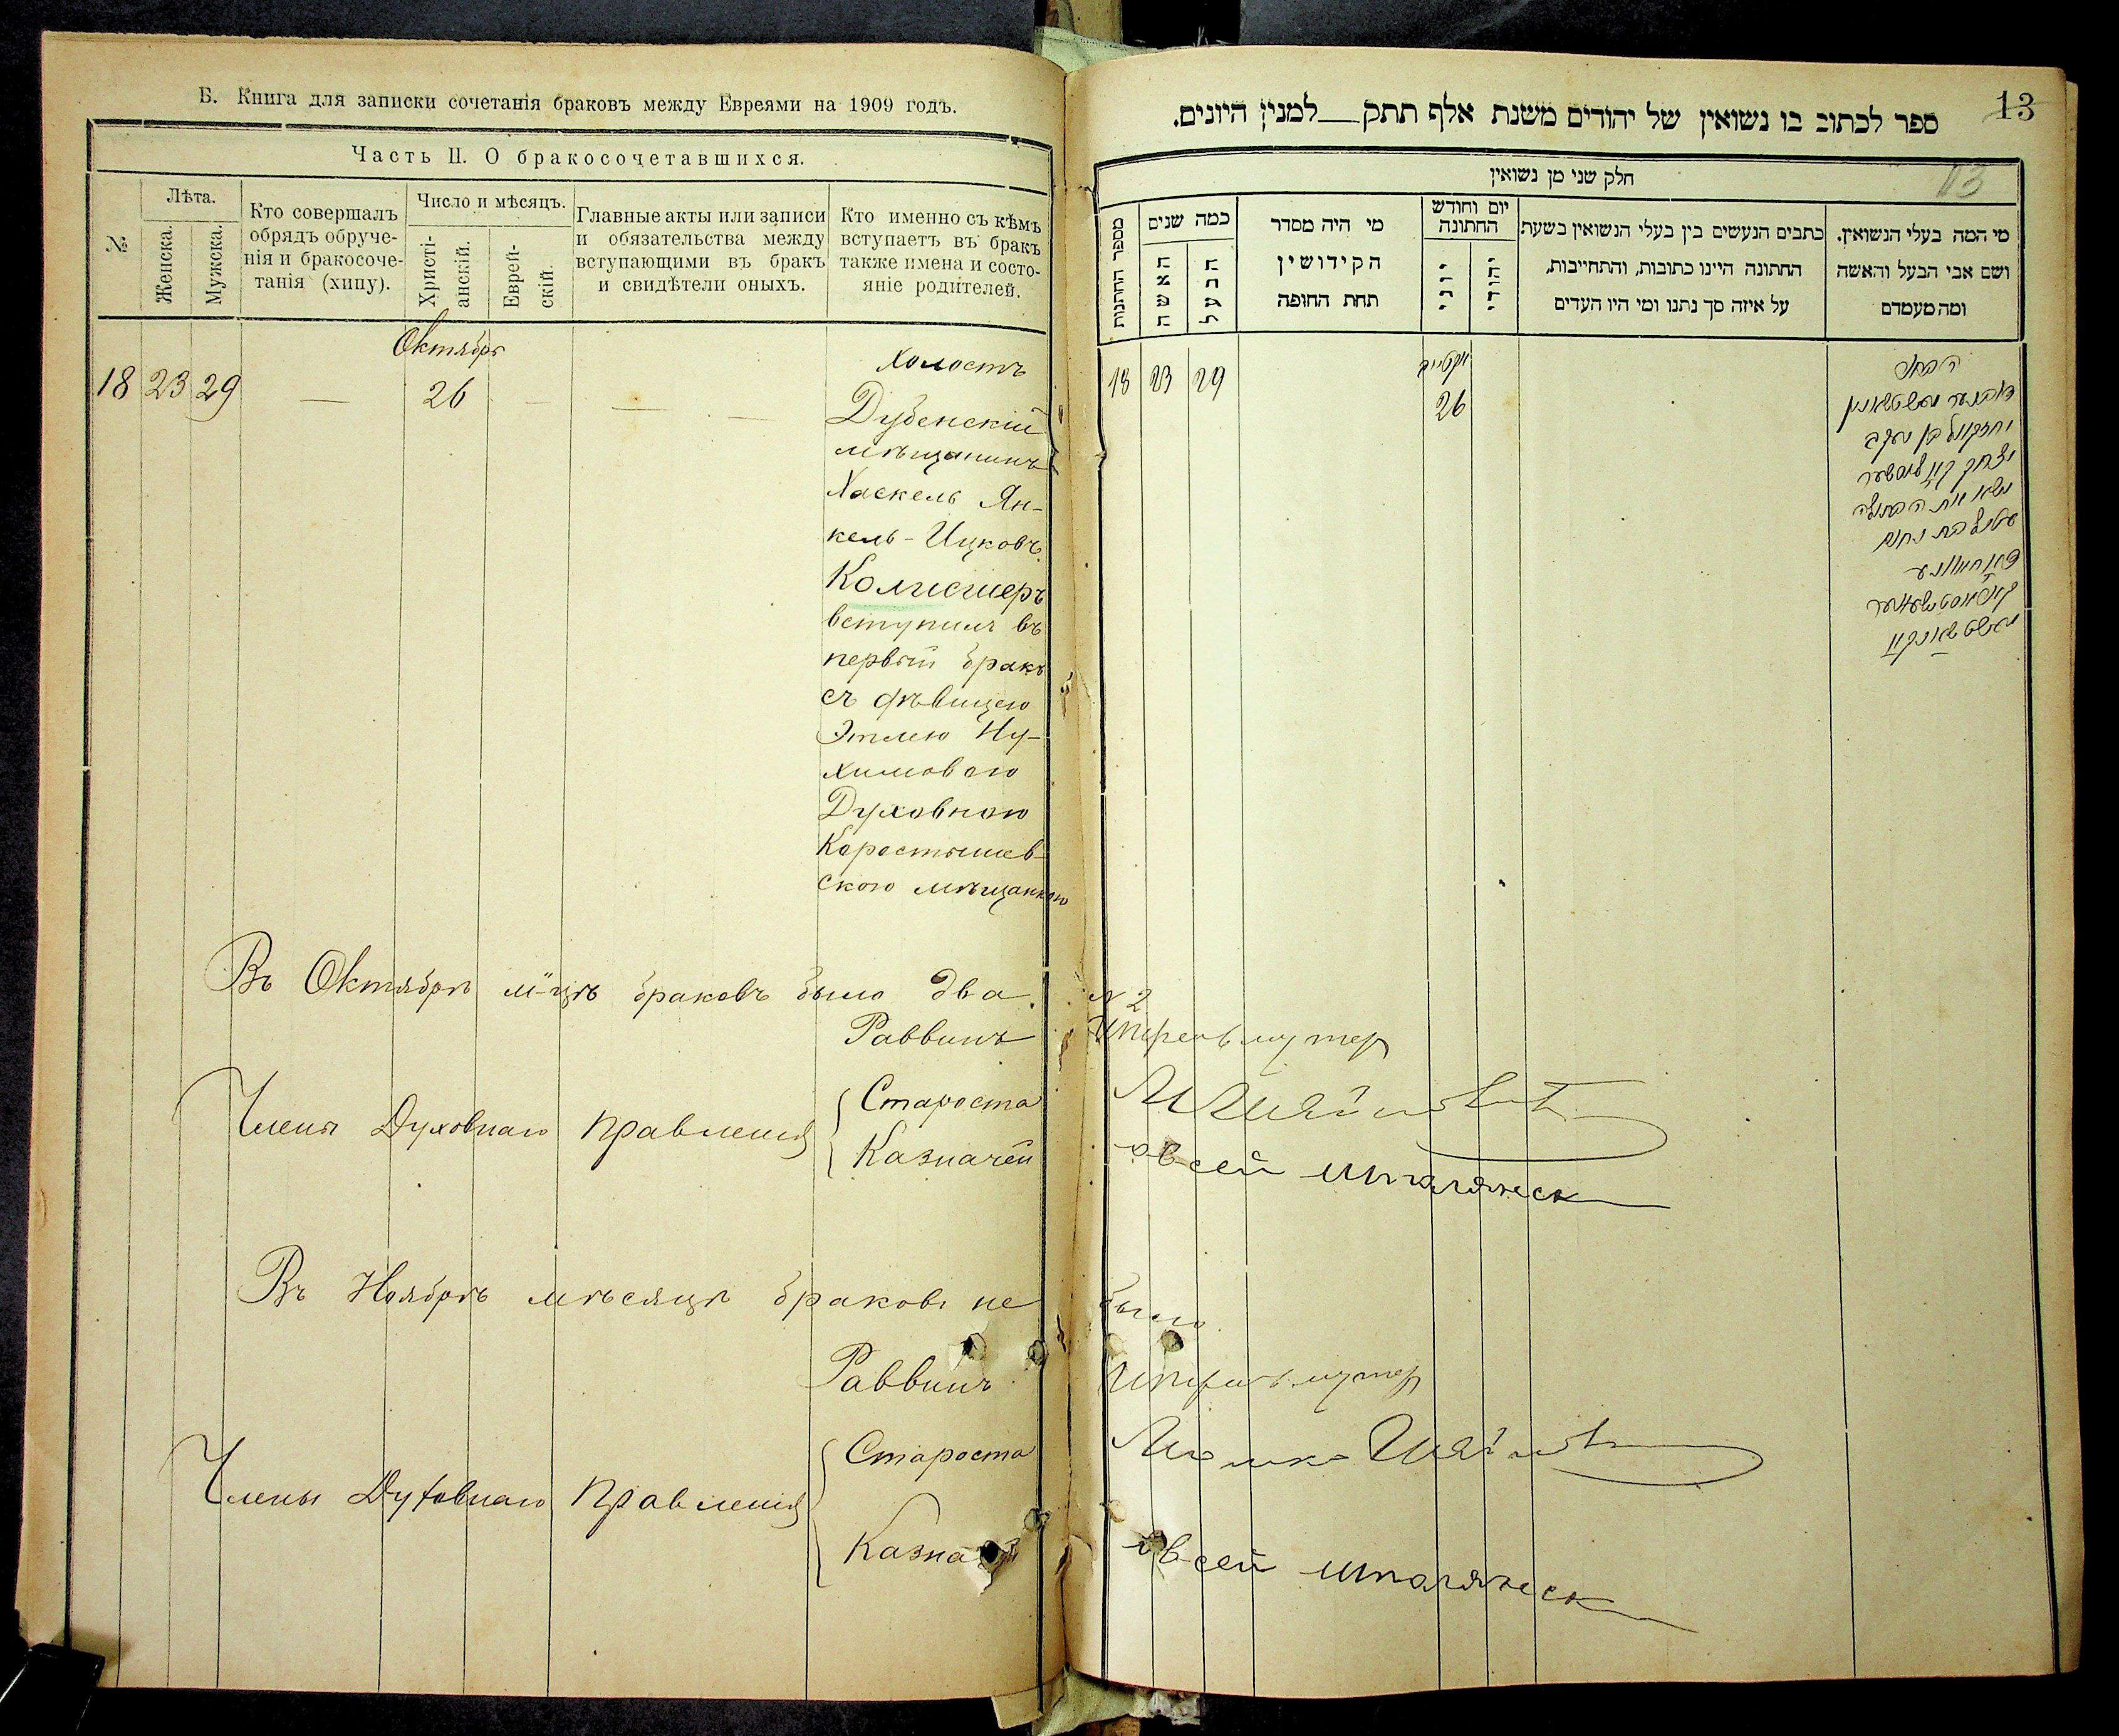 Б. Книга для записки сочетанія браковъ между Евреями на 1909 годъ.
Часть II. О бракосочетавшихся.
№
Лѣта.
Женска.
Мужска.
Кто совершалъ
обрядъ обруче-
нія и бракосоче-
танія (хипу).
Число и мѣсяцъ.
Христі-
анскій.
Еврей-
скій.
Главные акты или записи
и обязательства между
вступающими въ бракъ
и свидѣтели оныхъ.
Кто именно съ кѣмъ
вступаетъ въ бракъ
также имена и состо-
яніе родителей.
Октябрь
18 23 29 — 26 — — —
холостъ
Дубенскій
мѣщанинъ
Хаскель Ян-
кель-Ицковъ
Колисшеръ
вступилъ въ
первый бракъ
съ дѣвицею
Этлею Ну-
химовою
Духовною
Коростышев-
скою мѣщанкою
Въ Октябрѣ м-цѣ браковъ было два.
Раввинъ
Члены Духовнаго Правленія
Староста
Казначей
Въ Ноябрѣ мѣсяцѣ браковъ не
Раввинъ
Члены Духовнаго Правленія
Староста
Казначей
13
ספר לכתוב בו נשואין של יהודים משנת אלף תתק__למנין היונים.
13
חלק שני מן נשואין
מספר החתונות
כמה שנים
האשה
הבעל
מי היה מסדר
הקידושין
תחת החופה
יום וחודש
החתונה
יוני
יהודי
כתבים הנעשים בין בעלי הנשואין בשעת
החתונה היינו כתובות, והתחייבות,
על איזה סך נתנו ומי היו העדים
מי המה בעלי הנשואין.
ושם אבי הבעל והאשה
ומה מעמדם
18 23 29
26
יחזקאל בן יעקב
נשא את הבתולה
עטיל בת נחום
№ 2
Шпрехмутер
Овсей
было
Шпрехмутер
Мошко
Овсей